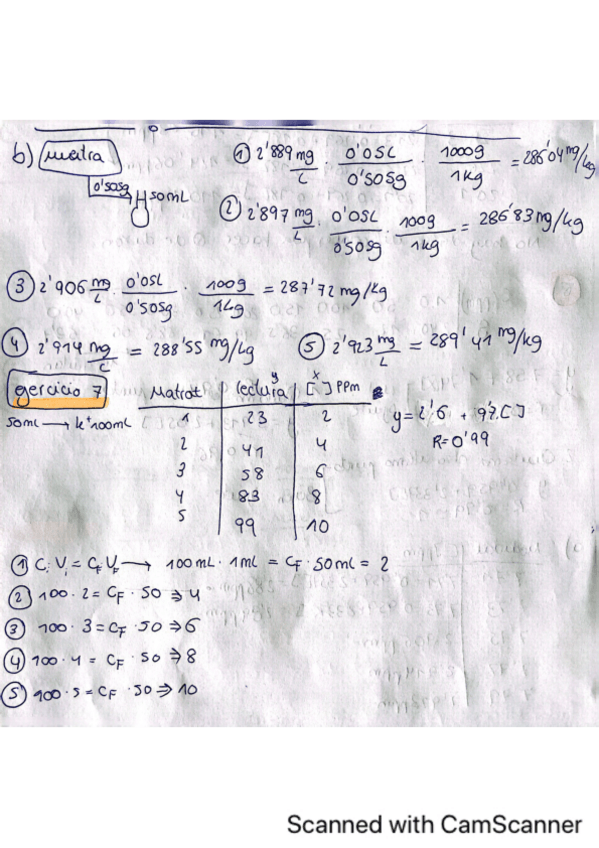 b) muestra ① 2'889 mg/L · 0'05L/0'505g · 1000g/1kg = 286'04 mg/kg
0'505g 50mL
② 2'897 mg/L · 0'05L/0'505g · 100g/1kg = 286'83 mg/kg
③ 2'906 mg/L · 0'05L/0'505g · 100g/1kg = 287'72 mg/kg
④ 2'914 mg/L = 288'55 mg/kg ⑤ 2'923 mg/L = 289'41 mg/kg
ejercicio 7 Matraz lectura y [ ] ppm x
50mL → k⁺ 100mL 1 23 2 y = 2'6 + 9'7·[ ]
2 41 4 R = 0'99
3 58 6
4 83 8
5 99 10
① Ci Vi = CF VF → 100mL · 1ml = CF · 50ml = 2
② 100 · 2 = CF · 50 ⇒ 4
③ 100 · 3 = CF · 50 ⇒ 6
④ 100 · 4 = CF · 50 ⇒ 8
⑤ 100 · 5 = CF · 50 ⇒ 10
Scanned with CamScanner